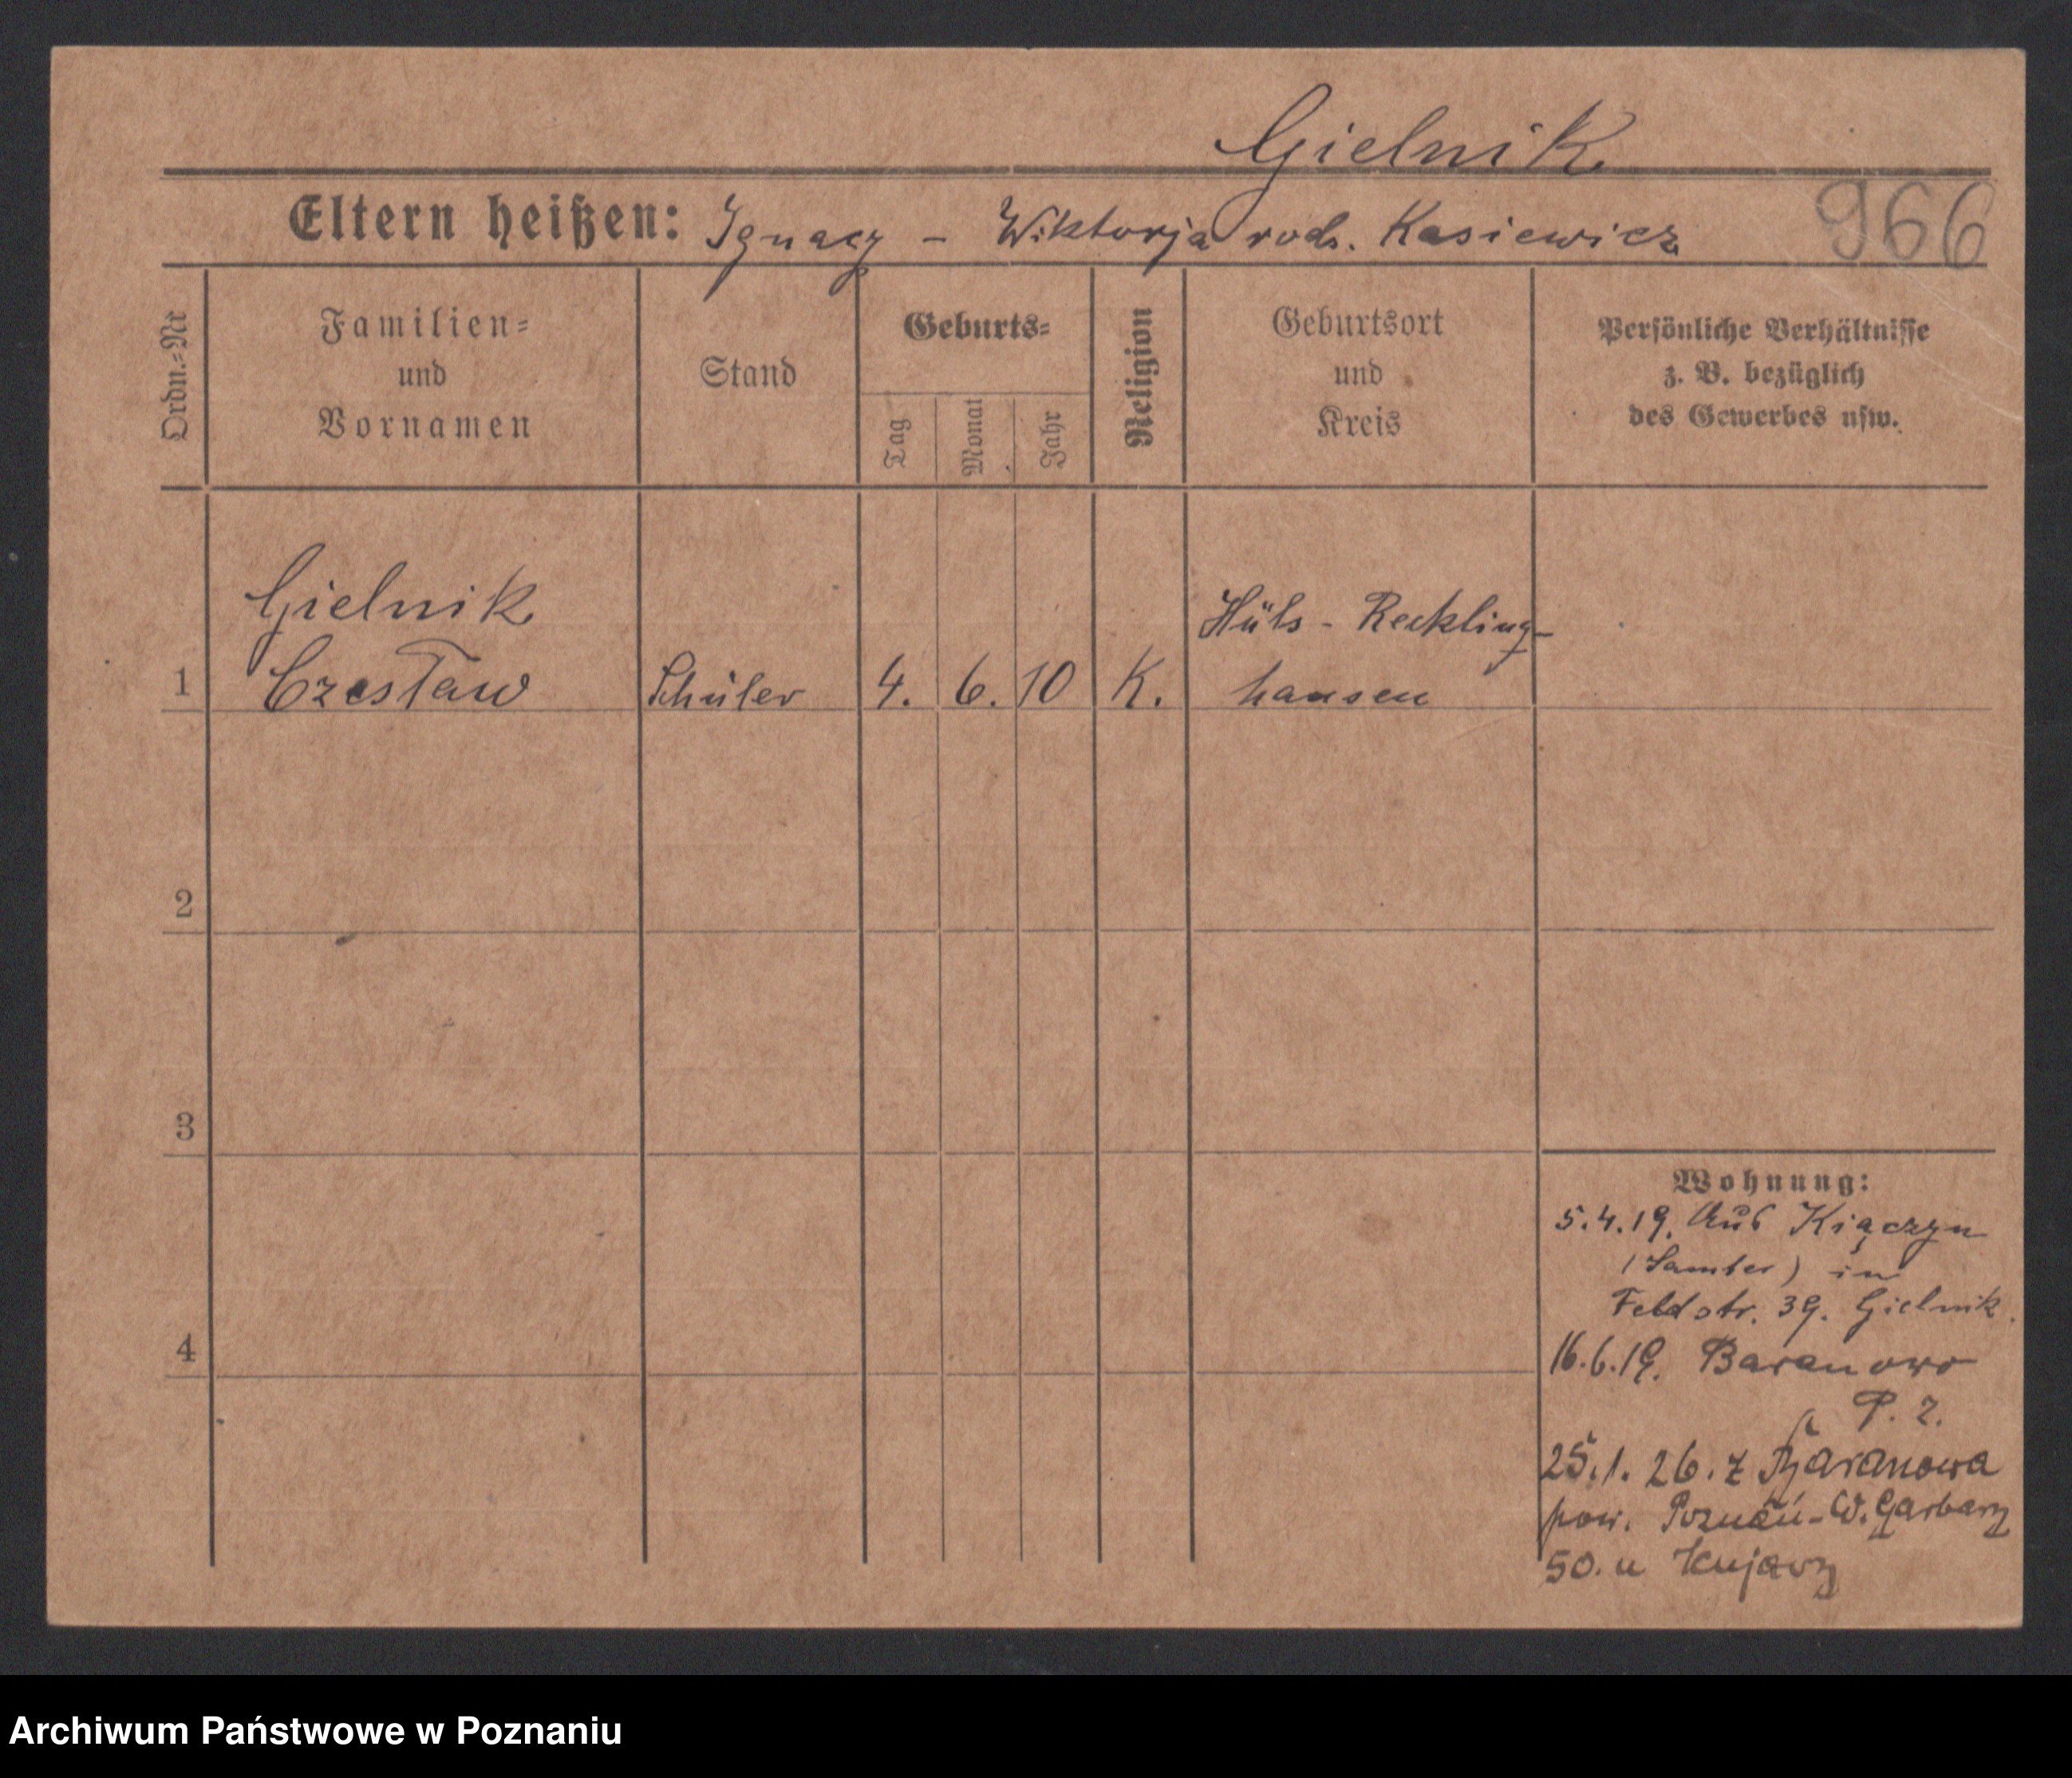 Gielnik
Eltern heißen: Ignacy - Wiktorja rodz. Kasiewicz
966
Ordn.-Nr
Familien-
und
Vornamen
Stand
Geburts-
Tag
Monat
Jahr
Religion
Geburtsort
und
Kreis
Persönliche Verhältnisse
z. B. bezüglich
des Gewerbes usw.
1
Gielnik
Czesław
Schüler
4. 6. 10
K.
Hüls - Reckling-
hausen
2
3
4
Wohnung:
5.4.19. Aus Kiączyn
(Samter) in
Feldstr. 39. Gielnik.
16.6.19. Baranowo
P. Z.
25.1.26. z Baranowa
pow. Poznań - W. Garbary
50. u
Archiwum Państwowe w Poznaniu